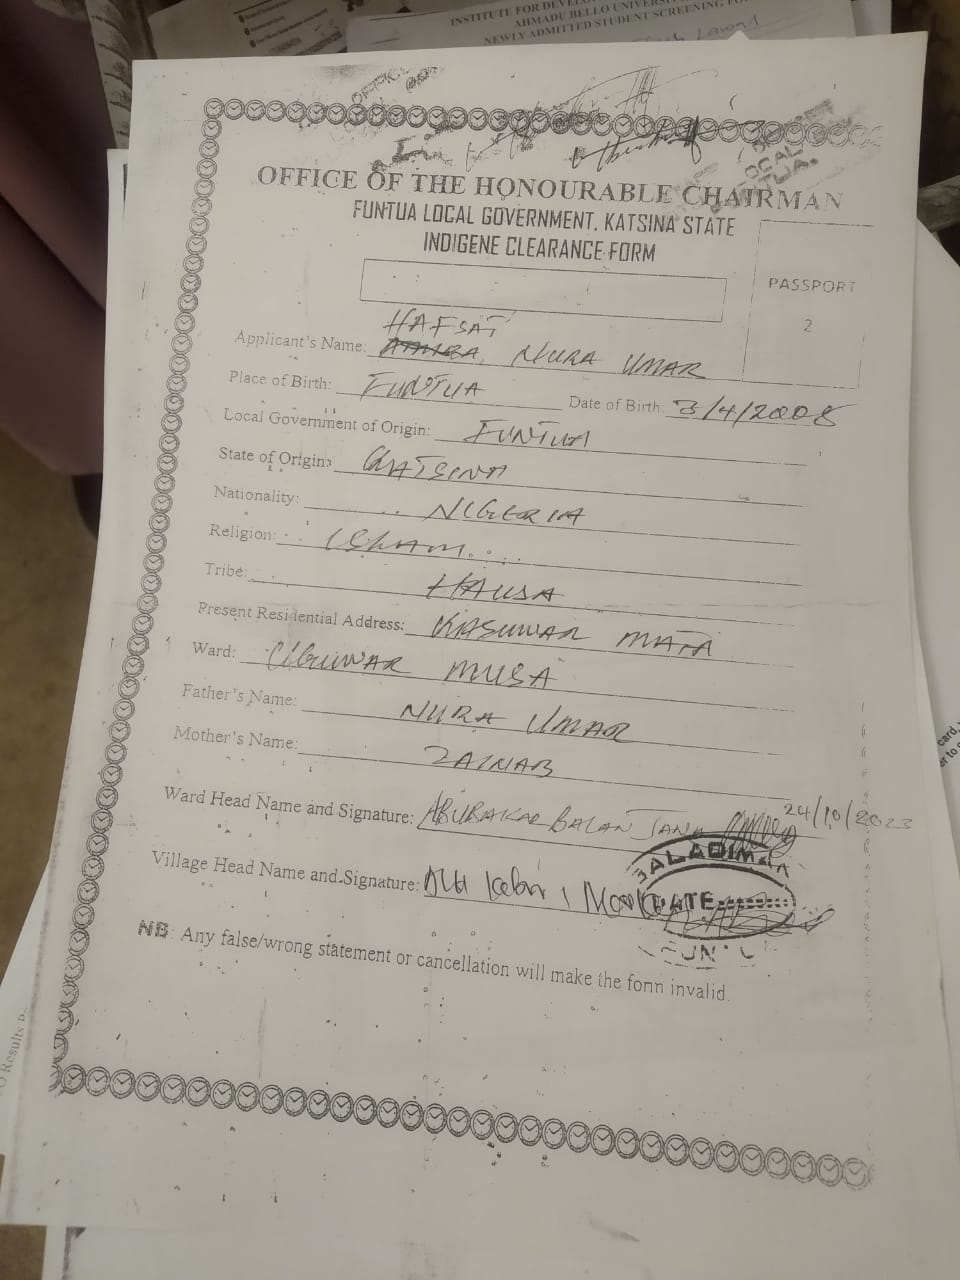 INSTITUTE FOR DEVEL
AHMADU BELLO UNIVERS
NEWLY ADMITTED STUDENT SCREENING FO
OFFICE OF THE HONOURABLE CHAIRMAN
FUNTUA LOCAL GOVERNMENT, KATSINA STATE
INDIGENE CLEARANCE FORM
PASSPORT
2
HAFSAT
Applicant's Name: NURA UMAR
Place of Birth: FUNTUA Date of Birth: 3/4/2008
Local Government of Origin: FUNTUA
State of Origin: KATSINA
Nationality: NIGERIA
Religion: ISLAM
Tribe: HAUSA
Present Residential Address: KASUWAR MATA
Ward: UNGUWAR MUSA
Father's Name: NURA UMAR
Mother's Name: ZAINAB
Ward Head Name and Signature: ABUBAKAR 24/10/2023
Village Head Name and Signature:
DATE
NB: Any false/wrong statement or cancellation will make the form invalid.